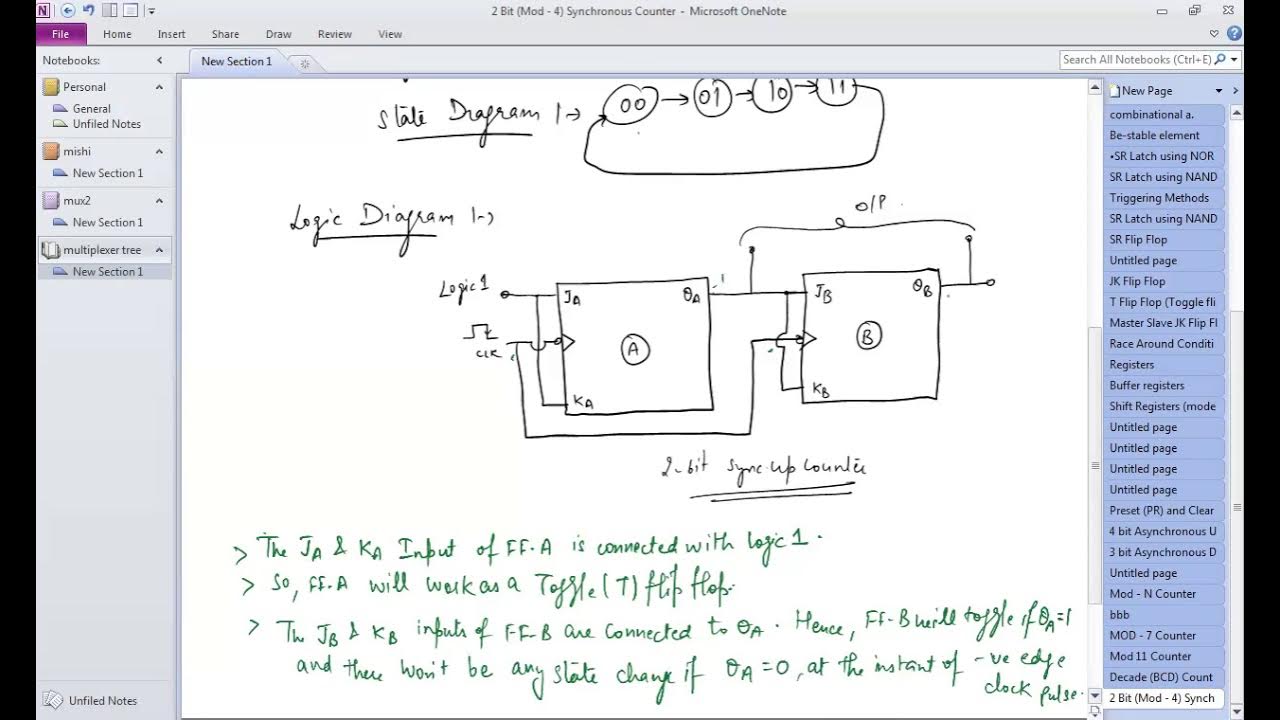 2 Bit (Mod - 4) Synchronous Counter - Microsoft OneNote
File Home Insert Share Draw Review View
Notebooks:
New Section 1
Search All Notebooks (Ctrl+E)
Personal
General
Unfiled Notes
mishi
New Section 1
mux2
New Section 1
multiplexer tree
New Section 1
Unfiled Notes
State Diagram :->
00 01 10 11
Logic Diagram :->
O/P
Logic 1
JA
QA
1
JB
QB
CLK
A
B
KA
KB
2-bit Sync. up counter
> The JA & KA Input of FF-A is connected with logic 1.
> So, FF-A will work as a Toggle (T) flip flop.
> The JB & KB inputs of FF-B are connected to QA. Hence, FF-B will toggle if QA=1
and there won't be any state change if QA=0, at the instant of -ve edge
clock pulse.
New Page
combinational a.
Be-stable element
•SR Latch using NOR
SR Latch using NAND
Triggering Methods
SR Latch using NAND
SR Flip Flop
Untitled page
JK Flip Flop
T Flip Flop (Toggle fli
Master Slave JK Flip Fl
Race Around Conditi
Registers
Buffer registers
Shift Registers (mode
Untitled page
Untitled page
Untitled page
Untitled page
Preset (PR) and Clear
4 bit Asynchronous U
3 bit Asynchronous D
Untitled page
Mod - N Counter
bbb
MOD - 7 Counter
Mod 11 Counter
Decade (BCD) Count
2 Bit (Mod - 4) Synch